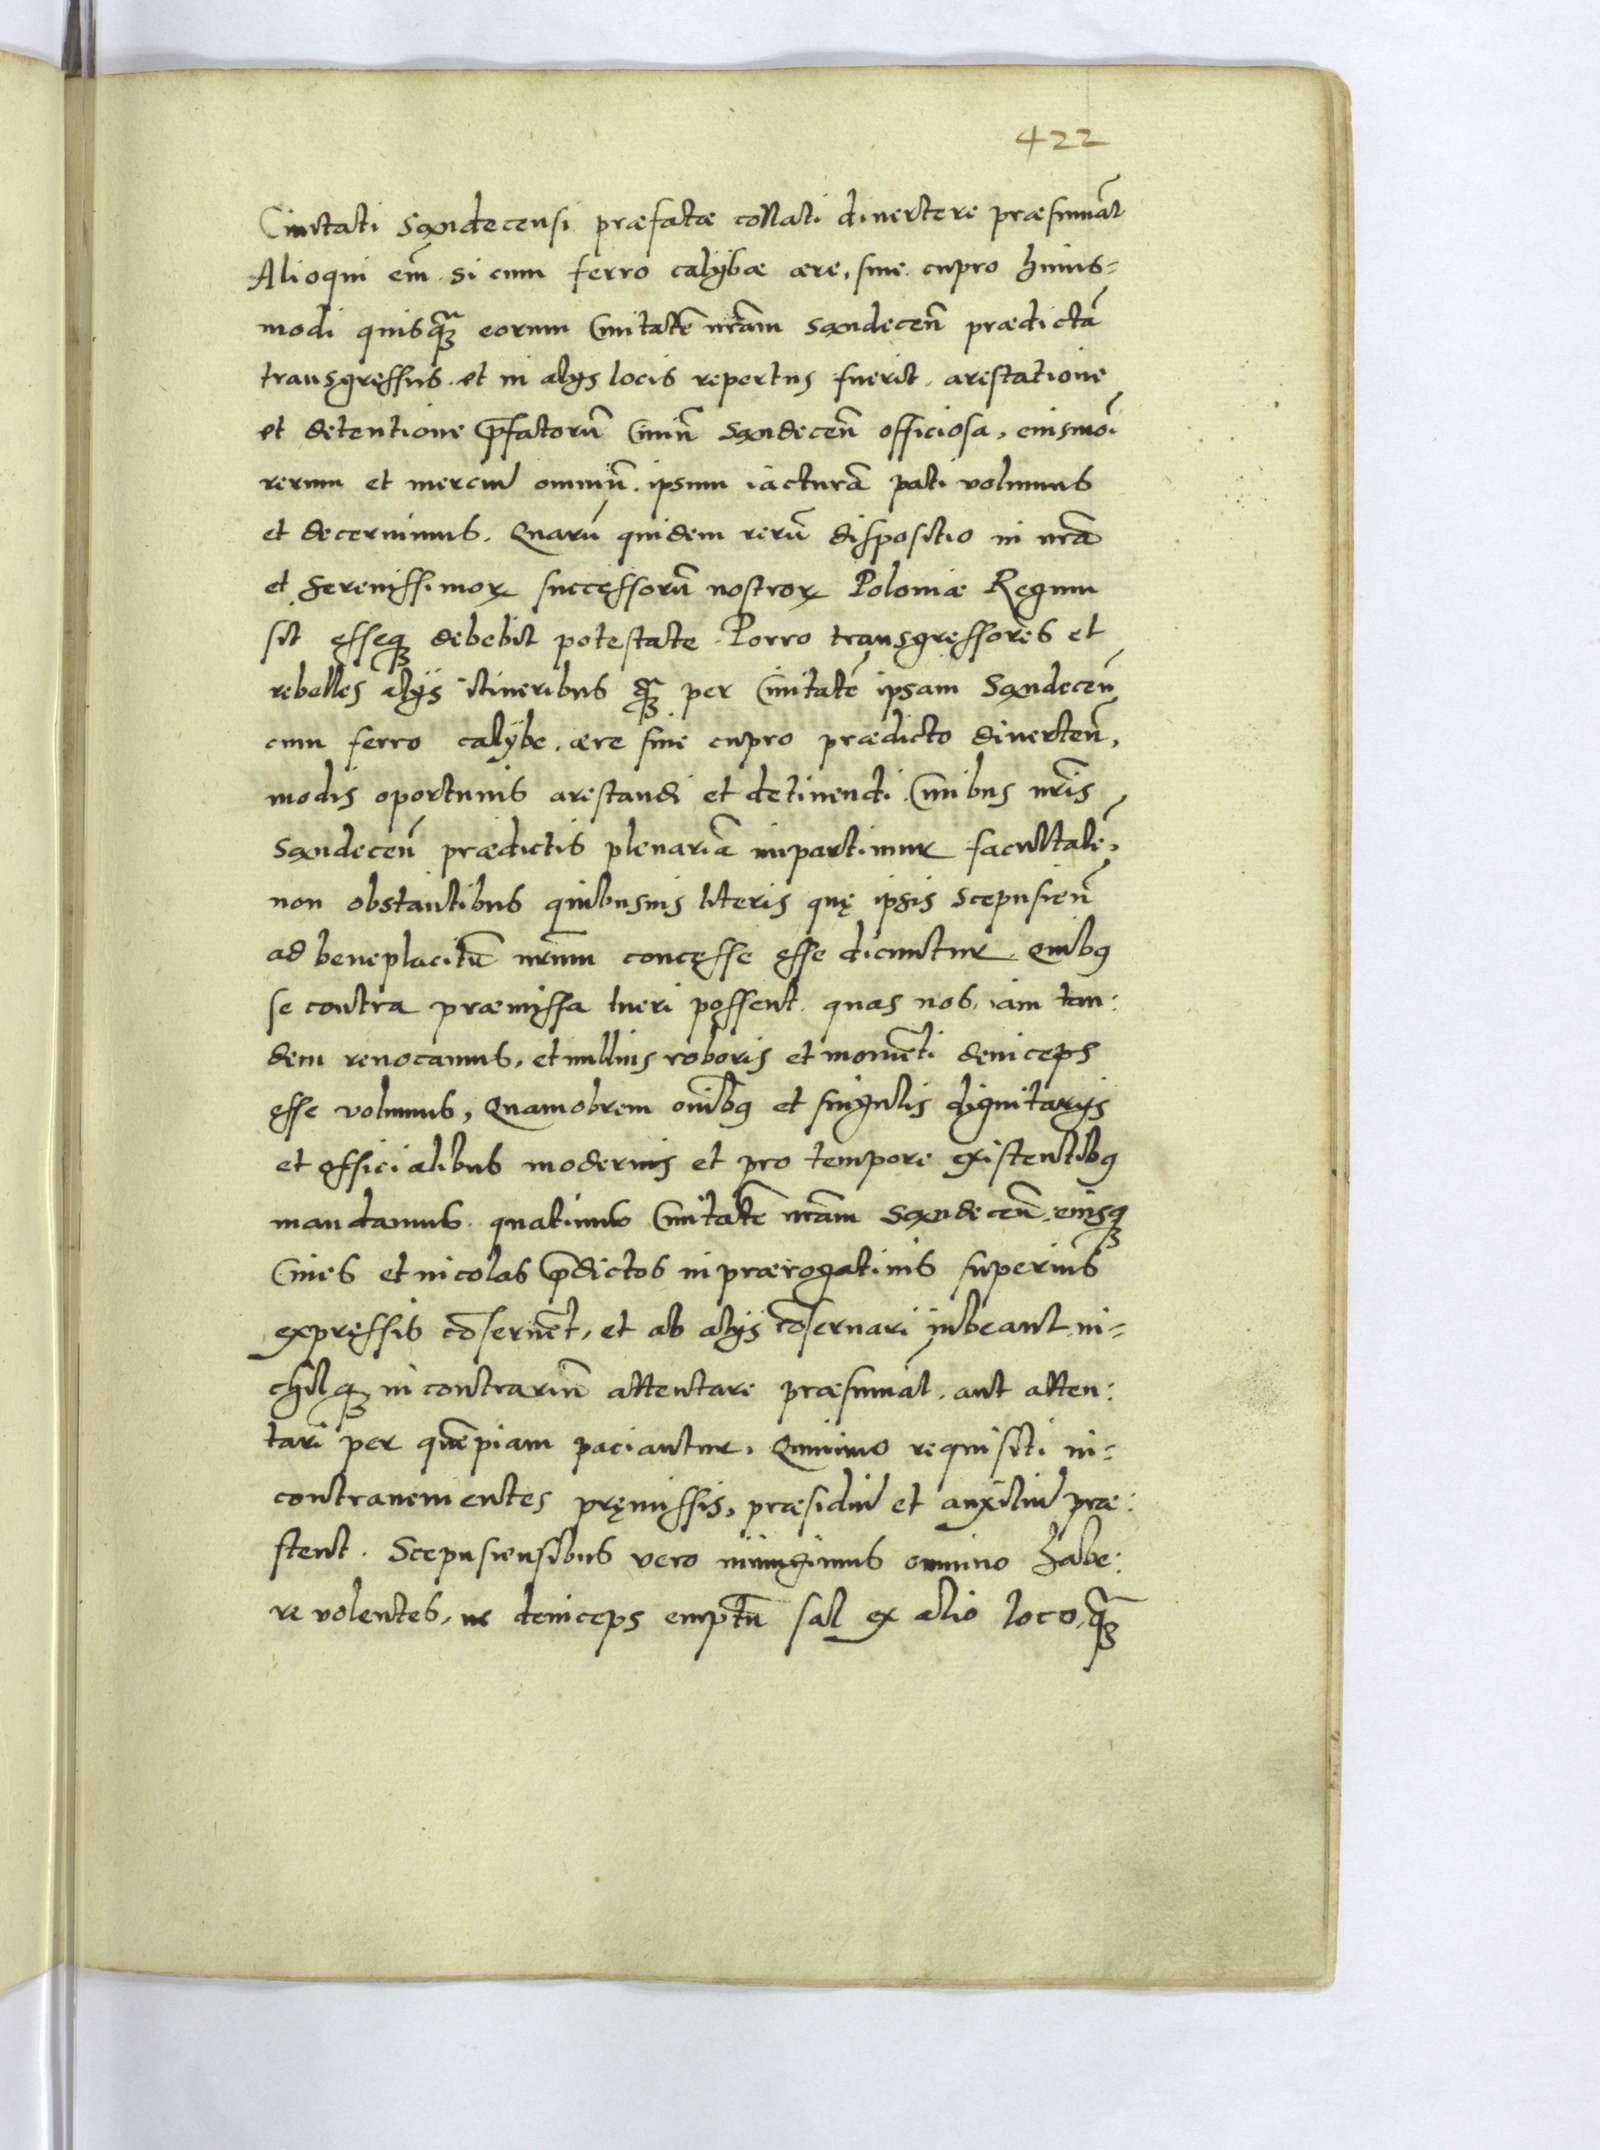 422
Ciuitati Sandecensi præfatæ collati diuertere præsumāt
Alioqui em̄ si cum ferro calybæ ære, siue cupro huius=
modi quisq̃ȝ eorum Ciuitatē nr̄am Sandeceñ prædictā
transgressus et in alijs locis repertus fuerit, arestatione
et detentione p̄fatorū Ciuiū Sandeceñ officiosa, eiusmōi
rerum et merciū omniū, ipsum iacturā pati volumus
et decernimus. Quarū quidem rerū dispositio in nr̄a
et Serenissimoꝝ successorū nostroꝝ Poloniæ Regum
sit esseqȝ debebit potestate. Porro transgressores et
rebelles alijs itineribus q̃ȝ per Ciuitatē ipsam Sandeceñ
cum ferro calybe, ære siue cupro prædicto diuerteñ,
modis oportunis arestandi et detinendi Ciuibus nr̄is
Sandeceñ prædictis plenariā impartimur facultatē,
non obstantibus quibusuis literis quę ipsis Scepusieñ
ad beneplacitū nr̄um concesse esse dicuntur, Quibꝯ
se contra præmissa tueri possent, quas nos, iam tan:
dem reuocamus, et nullius roboris et momēti deniceps
esse volumus, Quamobrem om̄ibꝯ et singulis dignitarijs
et officialibus modernis et pro tempore existentibꝯ
mandamus, quatinus Ciuitatē nr̄am Sandeceñ, eiusqȝ
Ciues et incolas p̄dictos in prærogatiuis superius
expressis cōseruēt, et ab alijs cōseruari iubeant, ni=
chilqȝ in contrariū attentare præsumāt, aut atten:
tari per quēpiam paciantur. Quinimo requisiti in=
contrauenientes pręmissis, præsidiū et auxiliū præ:
stent. Scepusiensibus vero iniungimus omnino habe:
re volentes, ne deniceps emptū sal ex alio loco, q̃ȝ